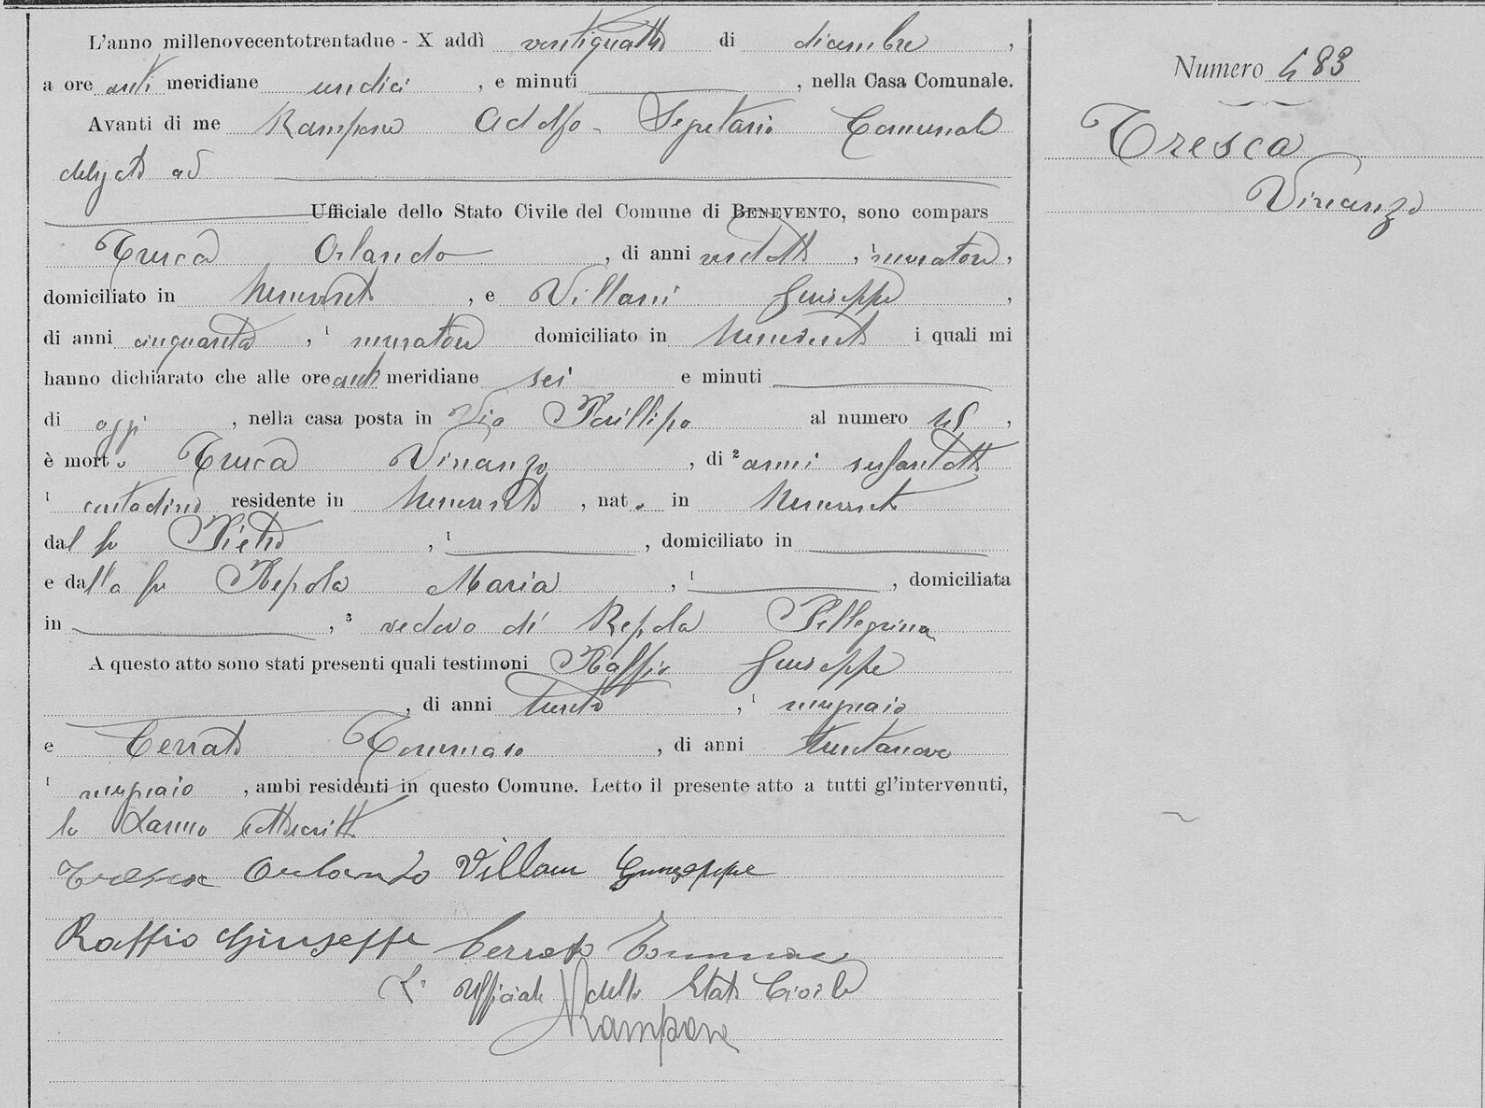 L'anno millenovecentotrentadue - X addì ventiquattro di dicembre ,
a ore anti meridiane undici , e minuti , nella Casa Comunale.
Avanti di me Rampone Adolfo Segretario Comunale
delegato ad
Ufficiale dello Stato Civile del Comune di BENEVENTO, sono compars
Tresca Orlando , di anni , 1 muratore ,
domiciliato in Benevento , e Villani Giuseppe ,
di anni cinquanta , 1 muratore domiciliato in Benevento i quali mi
hanno dichiarato che alle ore anti meridiane sei e minuti
di oggi , nella casa posta in Via Posillipo al numero ,
è morto Tresca Vinanzo , di 2 anni
1 contadino residente in Benevento , nato in Benevento
dal fu Pietro , 1 , domiciliato in
e dalla fu Repola Maria , 1 , domiciliata
in , 3 vedovo di Repola Pellegrina
A questo atto sono stati presenti quali testimoni Raffio Giuseppe
, di anni trenta , 1
e Cerrato Tommaso , di anni trentanove
1 , ambi residenti in questo Comune. Letto il presente atto a tutti gl'intervenuti,
lo hanno sottoscritto
Tresca Orlando Villani Giuseppe
Raffio Giuseppe Cerrato Tommaso
L' Ufficiale dello Stato Civile
Rampone
Numero 483
Tresca
Vinanzo